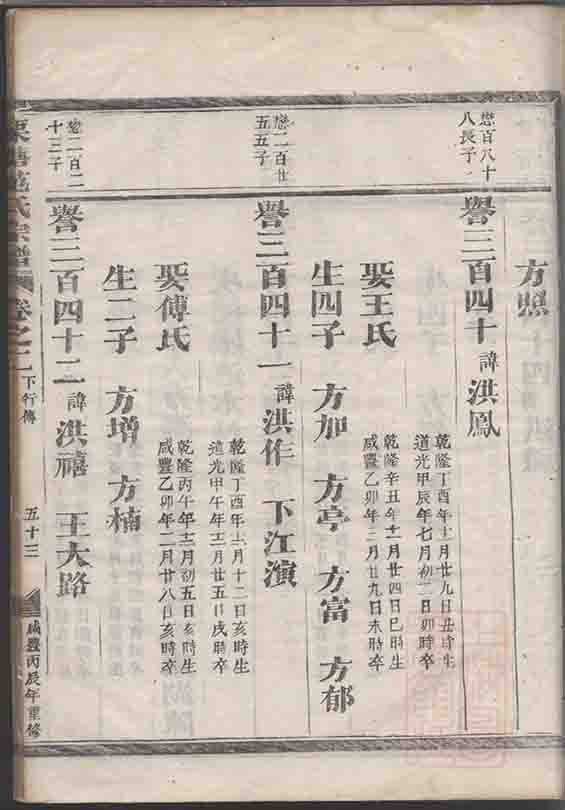 方照
懋百八十
八長子
譽三百四十 諱洪鳳
乾隆丁酉年十一月廿九日丑時生
道光甲辰年七月初二日卯時卒
娶王氏
乾隆辛丑年十一月廿四日巳時生
咸豐乙卯年三月廿九日未時卒
生四子 方加 方亭 方富 方郁
懋二百廿
五五子
譽三百四十一 諱洪作 下江濱
乾隆丁酉年十一月十二日亥時生
道光甲午年十二月廿五日戌時卒
娶傅氏
乾隆丙午年十二月初五日亥時生
咸豐乙卯年二月廿八日亥時卒
生二子 方增 方楠
懋二百二
十三子
譽三百四十二 諱洪禧 王大路
氏宗譜 卷之二 下行傳 五十三 咸豐丙辰年重修